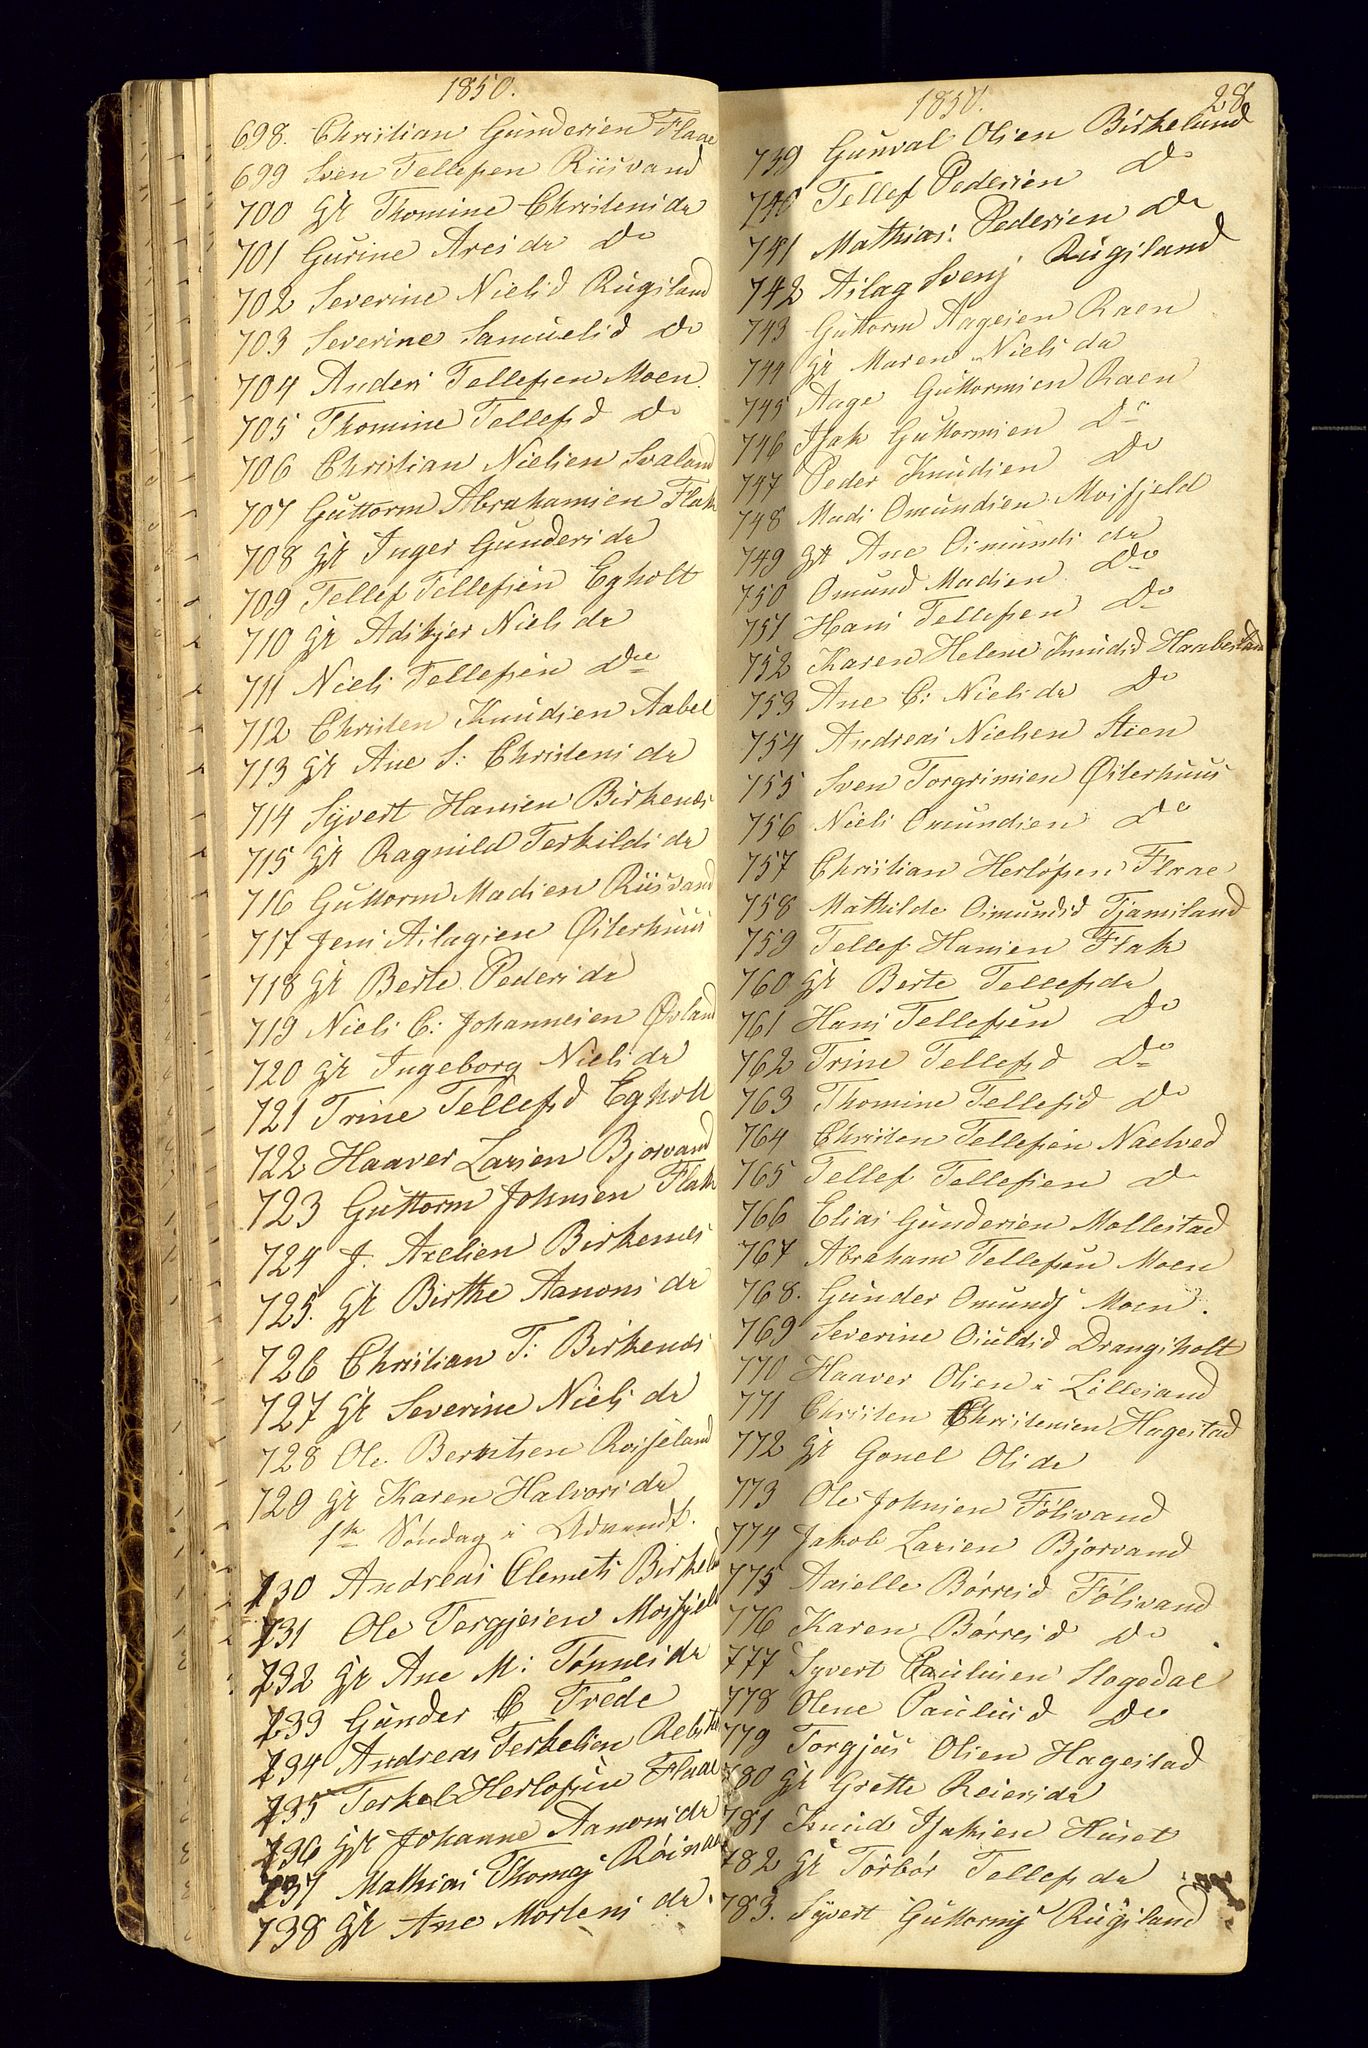 1850.
698. Christian Gundersen Flaae
699 Sven Tellefsen Riisvand
700 gt Thomine Christensda
701 Gurine Aresda Do
702 Severine Nielsd Rugsland
703 Severine Samuelsd Do
704 Anders Tellefsen Moen
705 Thomine Tellefsd Do
706 Christian Nielsen Svaland
707 Guttorm Abrahamsen Flak
708 gt Inger Gundersda
709 Tellef Tellefsen Egholt
710 gt Adskjer Nielsda
711 Niels Tellefsen Do
712 Christen Knudsen Aabel
713 gt Ane S: Christensda
714 Syvert Hansen Birkenes
715 gt Ragnild Terkildsda
716 Guttorm Madsen Riisvand
717 Jens Aslagsen Østerhuus
718 gt Berte Pedersda
719 Niels C: Johannesen Øvland
720 gt Ingeborg Nielsda
721 Trine Tellefsd Egholt
722 Haaver Larsen Bjorvand
723 Guttorm Johnsen Flak
724 J. Axelsen Birkenes
725. gt Birthe Aanonsda
726 Christian T: Birkenes
727 gt Severine Nielsda
728 Ole Berntsen Roiseland
729 gt Karen Halvorsda
1ste Søndag i Advendt.
730 Andreas Clemets Birkel
731 Ole Tergjesen Mosfjeld
732 gt Ane M: Tønnesda
733 Gunder C Trede
734 Andreas Terkelsen Rebst
735 Terkel Herlofsen Flaae
736 gt Johanne Aanonsda
737 Mathias Thomas Røsnæs
738 gt Ane Mortensda.
1850. 28
739 Gunval Olsen Birkelund
740 Tellef Pedersen Do
741 Mathias: Pedersen Do
742 Aslag Svens Rugsland
743 Guttorm Aagesen Raen
744 gt Maren Nielsda
745 Aage Guttormsen Raen
746 Isak Guttormsen Do
747 Peder Knudsen Do
748 Mads Omundsen Mosfjeld
749 gt Ane Osmundsda
750 Omund Madsen Do
751 Hans Tellefsen Do
752 Karen Helene Knudsd Haabestad
753 Ane C: Nielsda Do
754 Andreas Nielsen Stien
755 Sven Torgrimsen Østerhuus
756 Niels Omundsen Do
757 Christian Herlofsen Flaae
758 Mathilde Osmundsd Tjamsland
759 Tellef Hansen Flak
760 gt Berte Tellefsda
761 Hans Tellefsen Do
762 Trine Tellefsd Do
763 Thomine Tellefsd Do
764 Christen Tellefsen Naelved
765 Tellef Tellefsen Do
766 Elias Gundersen Mollestad
767 Abraham Tellefsen Moen
768. Gunder Omunds Moen.
769 Severine Osuldsd Drangsholt
770 Haaver Olsen i Lillesand
771 Christen Christensen Hagestad
772 gt Gonel Olsda
773 Ole Johnsen Følsvand
774 Jakob Larsen Bjorvand
775 Assielle Børresd Følsvand
776 Karen Børresd Do
777 Syvert Paulusen Slogedal
778 Olene Paulusd Do
779 Torgjus Olsen Hagestad
780 gt Grette Reiersda
781 Knud Isaksen Huset
782 gt Torbør Tellefsda
783. Syvert Guttorms Rugsland